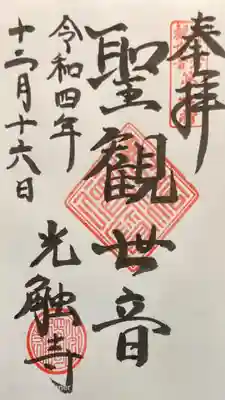 奉拝
聖観世音
光触寺
令和四年
十二月十六日